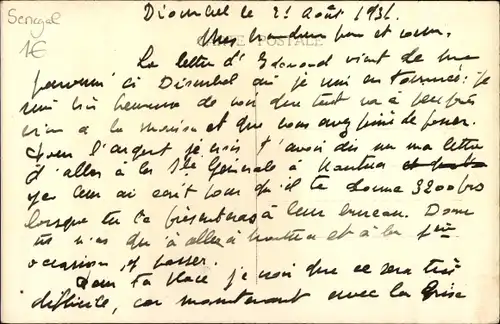 Senegal
1€
Diourbel le 21 Août 1931.
CARTE POSTALE
Mes frère et sœur.
La lettre d'Edouard vient de me
parvenir ici Diourbel où je suis en tournée : je
suis très heureux de voir que tout va à peu près
bien à la maison et que vous avez fini de
Pour l'argent je crois t'avoir dit sur ma lettre
d'aller à la Sté Générale à Nantua
je leur ai écrit pour qu'il te donne 3200 frs
lorsque tu te présenteras à leur bureau. Donc
tu n'as qu'à aller à Nantua et à la 1ère
occasion y passer.
Pour ta place je crois que ce sera très
difficile, car maintenant avec la crise